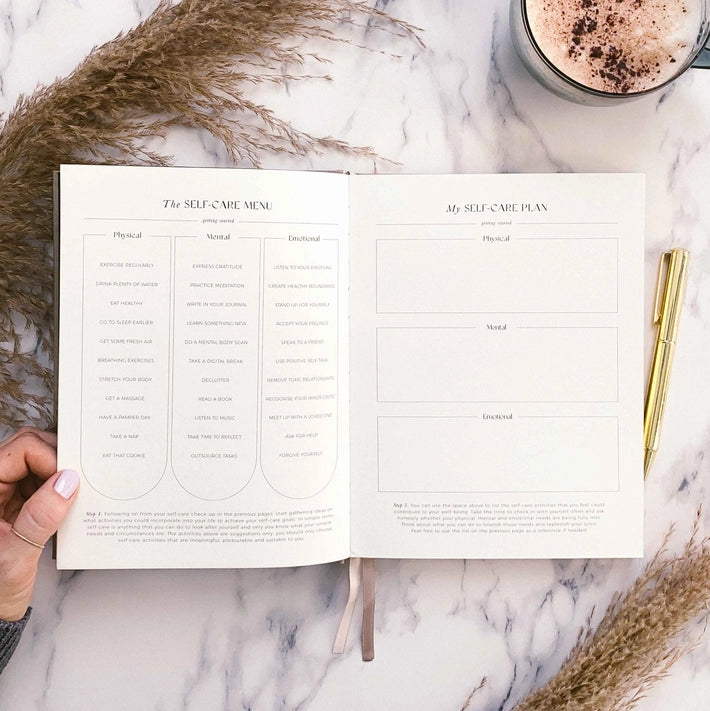 The SELF-CARE MENU
getting started
Physical
EXERCISE REGULARLY
DRINK PLENTY OF WATER
EAT HEALTHY
GO TO SLEEP EARLIER
GET SOME FRESH AIR
BREATHING EXERCISES
STRETCH YOUR BODY
GET A MASSAGE
HAVE A PAMPER DAY
TAKE A NAP
EAT THAT COOKIE
Mental
EXPRESS GRATITUDE
PRACTICE MEDITATION
WRITE IN YOUR JOURNAL
LEARN SOMETHING NEW
DO A MENTAL BODY SCAN
TAKE A DIGITAL BREAK
DECLUTTER
READ A BOOK
LISTEN TO MUSIC
TAKE TIME TO REFLECT
OUTSOURCE TASKS
Emotional
LISTEN TO YOUR EMOTIONS
CREATE HEALTHY BOUNDARIES
STAND UP FOR YOURSELF
ACCEPT YOUR FEELINGS
SPEAK TO A FRIEND
USE POSITIVE SELF TALK
REMOVE TOXIC RELATIONSHIPS
RECOGNISE YOUR INNER CRITIC
MEET UP WITH A LOVED ONE
ASK FOR HELP
FORGIVE YOURSELF
Step 4. Following on from your self-care check-up in the previous pages, start gathering ideas on
what activities you could incorporate into your life to achieve your self-care goals. In simple terms,
self-care is anything that you can do to look after yourself and only you know what your unique
needs and circumstances are. The activities above are suggestions only, you should only choose
self-care activities that are meaningful, pleasurable and suitable to you.
My SELF-CARE PLAN
getting started
Physical
Mental
Emotional
Step 5. You can use the space above to list the self-care activities that you feel could
contribute to your well-being. Take the time to check in with yourself often and ask
honestly whether your physical, mental and emotional needs are being fully met.
Think about what you can do to nourish those needs and replenish your space.
Feel free to use the list on the previous page as a reference if needed.